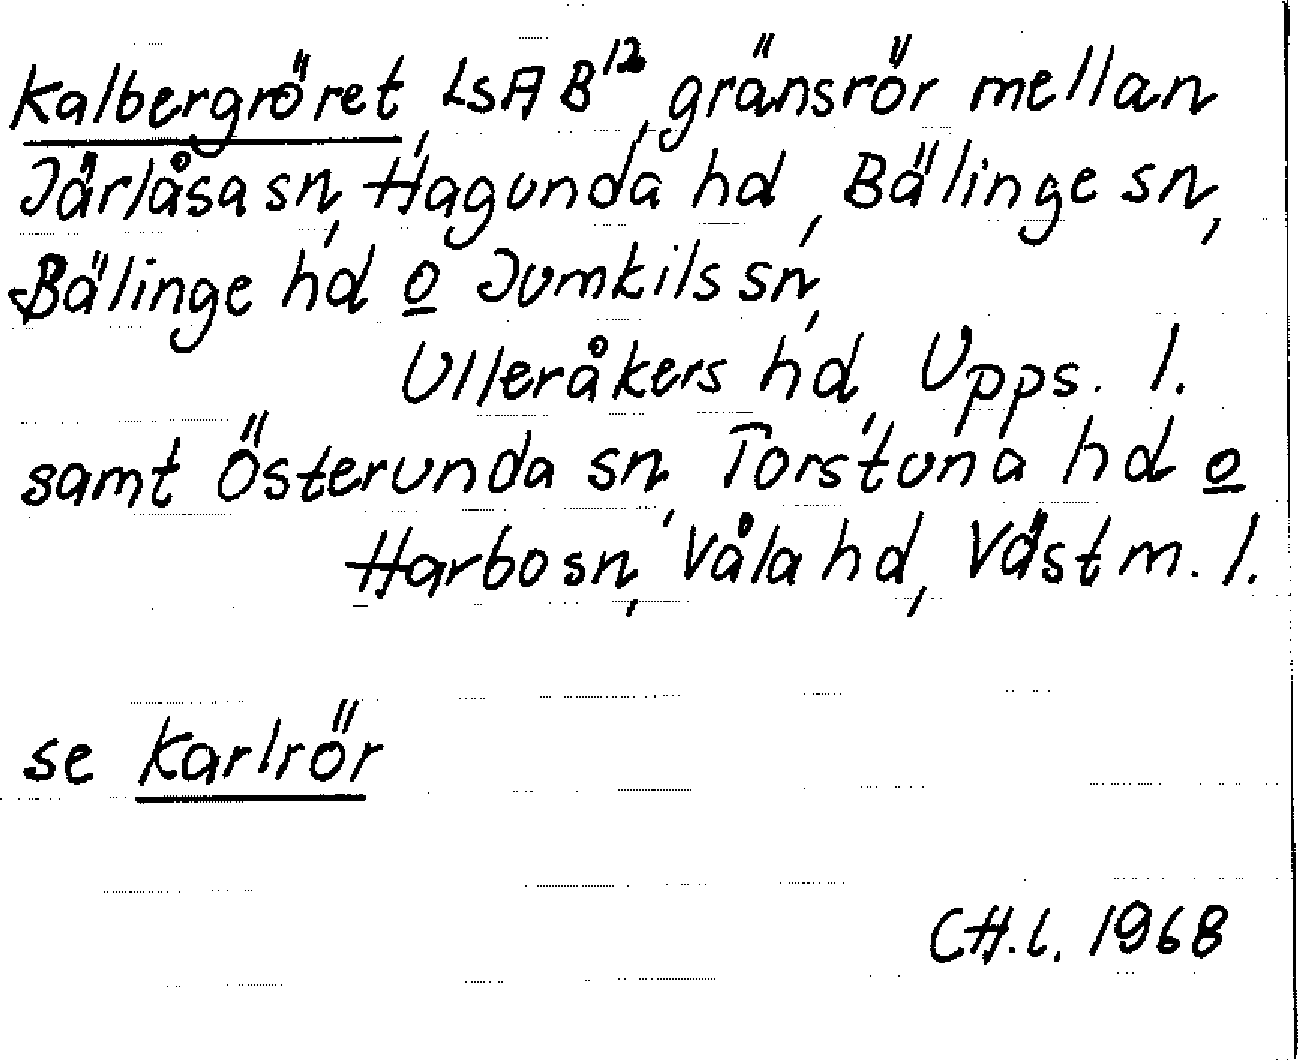 Kalbergröret, LSA B12, gränsrör mellan
Järlåsa sn, Hagunda hd, Bälinge sn,
Bälinge hd o Jumkils sn,
Ulleråkers hd, Upps. l.
samt Österunda sn, Torstuna hd o
Harbo sn, Våla hd, Västm. l.
se Karlrör
CH.L. 1968